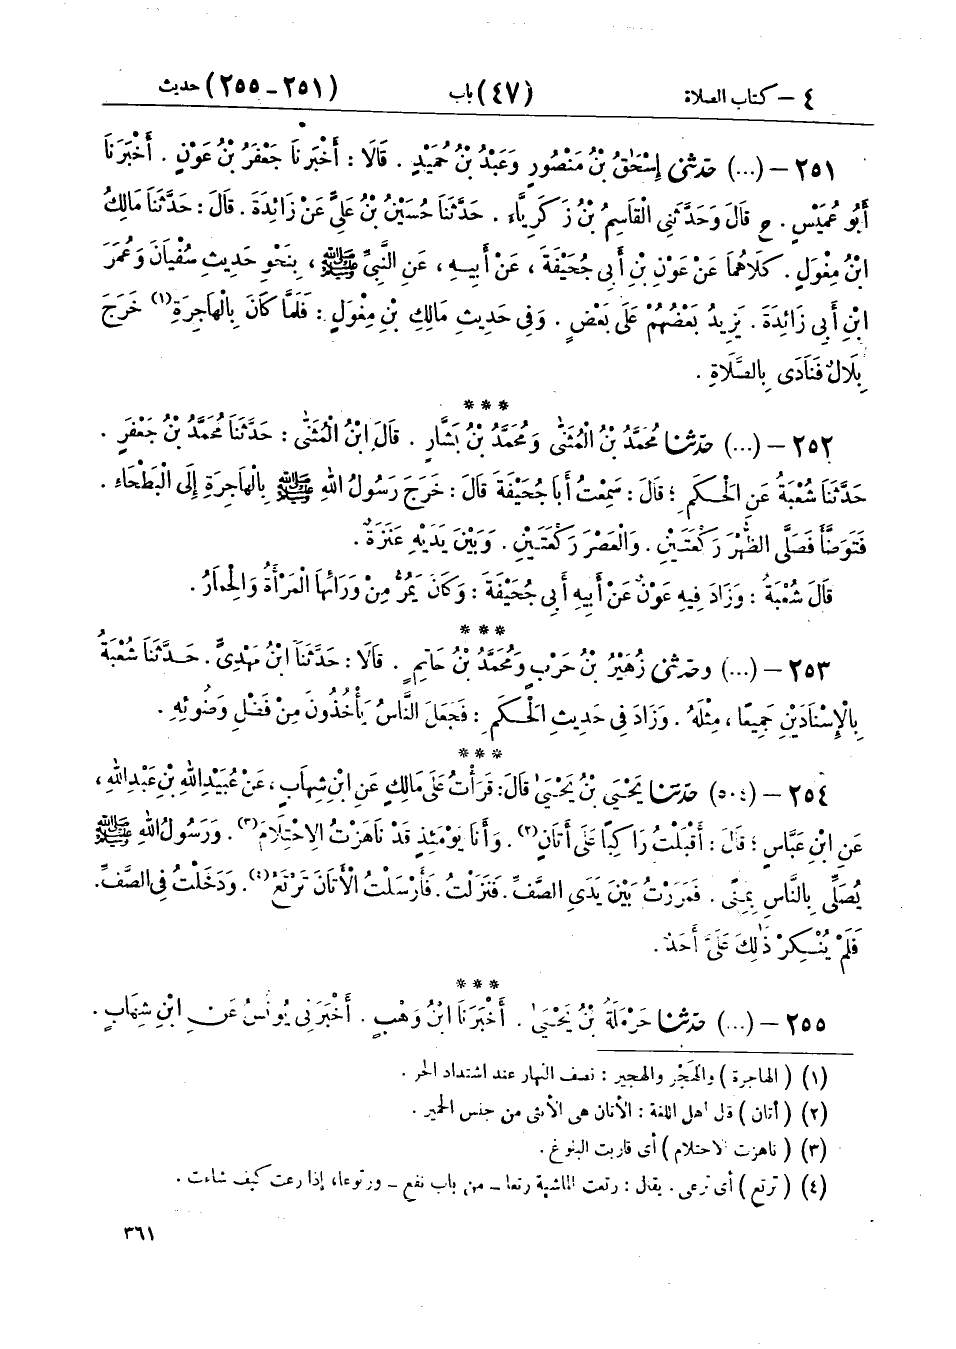 ٤ - كتاب الصلاة (٤٧) باب (٢٥١ - ٢٥٥) حديث
٢٥١ - (...) حَدَّثَنِي إِسْحَقُ بْنُ مَنْصُورٍ وَعَبْدُ بْنُ حُمَيْدٍ . قَالَا : أَخْبَرَنَا جَعْفَرُ بْنُ عَوْنٍ . أَخْبَرَنَا
أَبُو عُمَيْسٍ . ح قَالَ وَحَدَّثَنِي الْقَاسِمُ بْنُ زَكَرِيَّاءَ . حَدَّثَنَا حُسَيْنُ بْنُ عَلِيٍّ عَنْ زَائِدَةَ . قَالَ : حَدَّثَنَا مَالِكُ
ابْنُ مِغْوَلٍ . كِلَاهُمَا عَنْ عَوْنِ بْنِ أَبِي جُحَيْفَةَ ، عَنْ أَبِيهِ ، عَنِ النَّبِيِّ ﷺ ، بِنَحْوِ حَدِيثِ سُفْيَانَ وَعُمَرَ
ابْنِ أَبِي زَائِدَةَ . يَزِيدُ بَعْضُهُمْ عَلَى بَعْضٍ . وَفِي حَدِيثِ مَالِكِ بْنِ مِغْوَلٍ : فَلَمَّا كَانَ بِالْهَاجِرَةِ (١) خَرَجَ
بِلَالٌ فَنَادَى بِالصَّلَاةِ .
* * *
٢٥٢ - (...) حَدَّثَنَا مُحَمَّدُ بْنُ الْمُثَنَّى وَمُحَمَّدُ بْنُ بَشَّارٍ . قَالَ ابْنُ الْمُثَنَّى : حَدَّثَنَا مُحَمَّدُ بْنُ جَعْفَرٍ .
حَدَّثَنَا شُعْبَةُ عَنِ الْحَكَمِ ؛ قَالَ : سَمِعْتُ أَبَا جُحَيْفَةَ قَالَ : خَرَجَ رَسُولُ اللهِ ﷺ بِالْهَاجِرَةِ إِلَى الْبَطْحَاءِ .
فَتَوَضَّأَ فَصَلَّى الظُّهْرَ رَكْعَتَيْنِ . وَالْعَصْرَ رَكْعَتَيْنِ . وَبَيْنَ يَدَيْهِ عَنَزَةٌ .
قَالَ شُعْبَةُ : وَزَادَ فِيهِ عَوْنٌ عَنْ أَبِيهِ أَبِي جُحَيْفَةَ : وَكَانَ يَمُرُّ مِنْ وَرَائِهَا الْمَرْأَةُ وَالْحِمَارُ .
* * *
٢٥٣ - (...) وحَدَّثَنِي زُهَيْرُ بْنُ حَرْبٍ وَمُحَمَّدُ بْنُ حَاتِمٍ . قَالَا : حَدَّثَنَا ابْنُ مَهْدِيٍّ . حَدَّثَنَا شُعْبَةُ
بِالْإِسْنَادَيْنِ جَمِيعًا ، مِثْلَهُ . وَزَادَ فِي حَدِيثِ الْحَكَمِ : فَجَعَلَ النَّاسُ يَأْخُذُونَ مِنْ فَضْلِ وَضُوئِهِ .
* * *
٢٥٤ - (٥٠٤) حَدَّثَنَا يَحْيَى بْنُ يَحْيَى قَالَ: قَرَأْتُ عَلَى مَالِكٍ عَنِ ابْنِ شِهَابٍ ، عَنْ عُبَيْدِ اللهِ بْنِ عَبْدِ اللهِ ،
عَنِ ابْنِ عَبَّاسٍ ؛ قَالَ : أَقْبَلْتُ رَاكِبًا عَلَى أَتَانٍ (٢). وَأَنَا يَوْمَئِذٍ قَدْ نَاهَزْتُ الِاحْتِلَامَ (٣) . وَرَسُولُ اللهِ ﷺ
يُصَلِّي بِالنَّاسِ بِمِنًى . فَمَرَرْتُ بَيْنَ يَدَيِ الصَّفِّ . فَنَزَلْتُ . فَأَرْسَلْتُ الْأَتَانَ تَرْتَعُ (٤). وَدَخَلْتُ فِي الصَّفِّ.
فَلَمْ يُنْكِرْ ذَٰلِكَ عَلَيَّ أَحَدٌ .
* * *
٢٥٥ - (...) حَدَّثَنَا حَرْمَلَةُ بْنُ يَحْيَى . أَخْبَرَنَا ابْنُ وَهْبٍ . أَخْبَرَنِي يُونُسُ عَنِ ابْنِ شِهَابٍ .
(١) ( الهاجرة ) والهَجْر والهجير : نصف النهار عند اشتداد الحر .
(٢) ( أتان ) قال أهل اللغة : الأتان هى الأنثى من جنس الحمير .
(٣) ( ناهزت الاحتلام ) أى قاربت البلوغ .
(٤) ( ترتع ) أى ترعى . يقال : رتعت الماشية رتعا - من باب نفع - ورتوعا ، إذا رعت كيف شاءت .
٣٦١